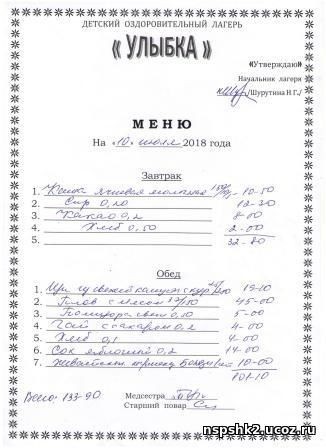 ДЕТСКИЙ ОЗДОРОВИТЕЛЬНЫЙ ЛАГЕРЬ
« УЛЫБКА »
«Утверждаю»
Начальник лагеря
/Шурутина Н.Г./
МЕНЮ
На «10» июля 2018 года
Завтрак
1. Каша ячневая молочная 10-50
2. Сыр 0,20 12-30
3. Какао 0,2 8-00
4. Хлеб 0,50 2-00
5. 32-80
Обед
1. Щи из свежей капусты с кур 19-10
2. Плов с мясом 45-00
3. Помидора свеж 0,10 5-00
4. Чай с сахаром 0,2 4-00
5. Хлеб 0,1 4-00
6. Сок яблочный 0,2 14-00
7. 10-00
101-10
Всего: 133-90
Медсестра
Старший повар
nspshk2.ucoz.ru